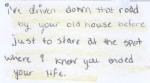 i've driven down that road
by your old house before
just to stare at the spot
where i know you ended
your life.